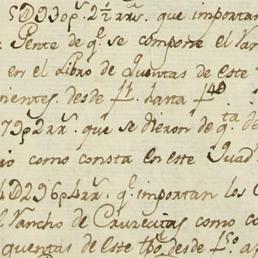 5D930p. 2½ rr.s que importan
Gente de q.e se compone el Ran
en el Libro de Quentas de este
nientes desde f.1. hasta f.48
79p2rr.s que se dieron de q.ta d
io como consta en este Quad
4D296p4rr.s q.e importan los
l Rancho de Cruzecitas como co
quentas de este tpo desde f.50 a